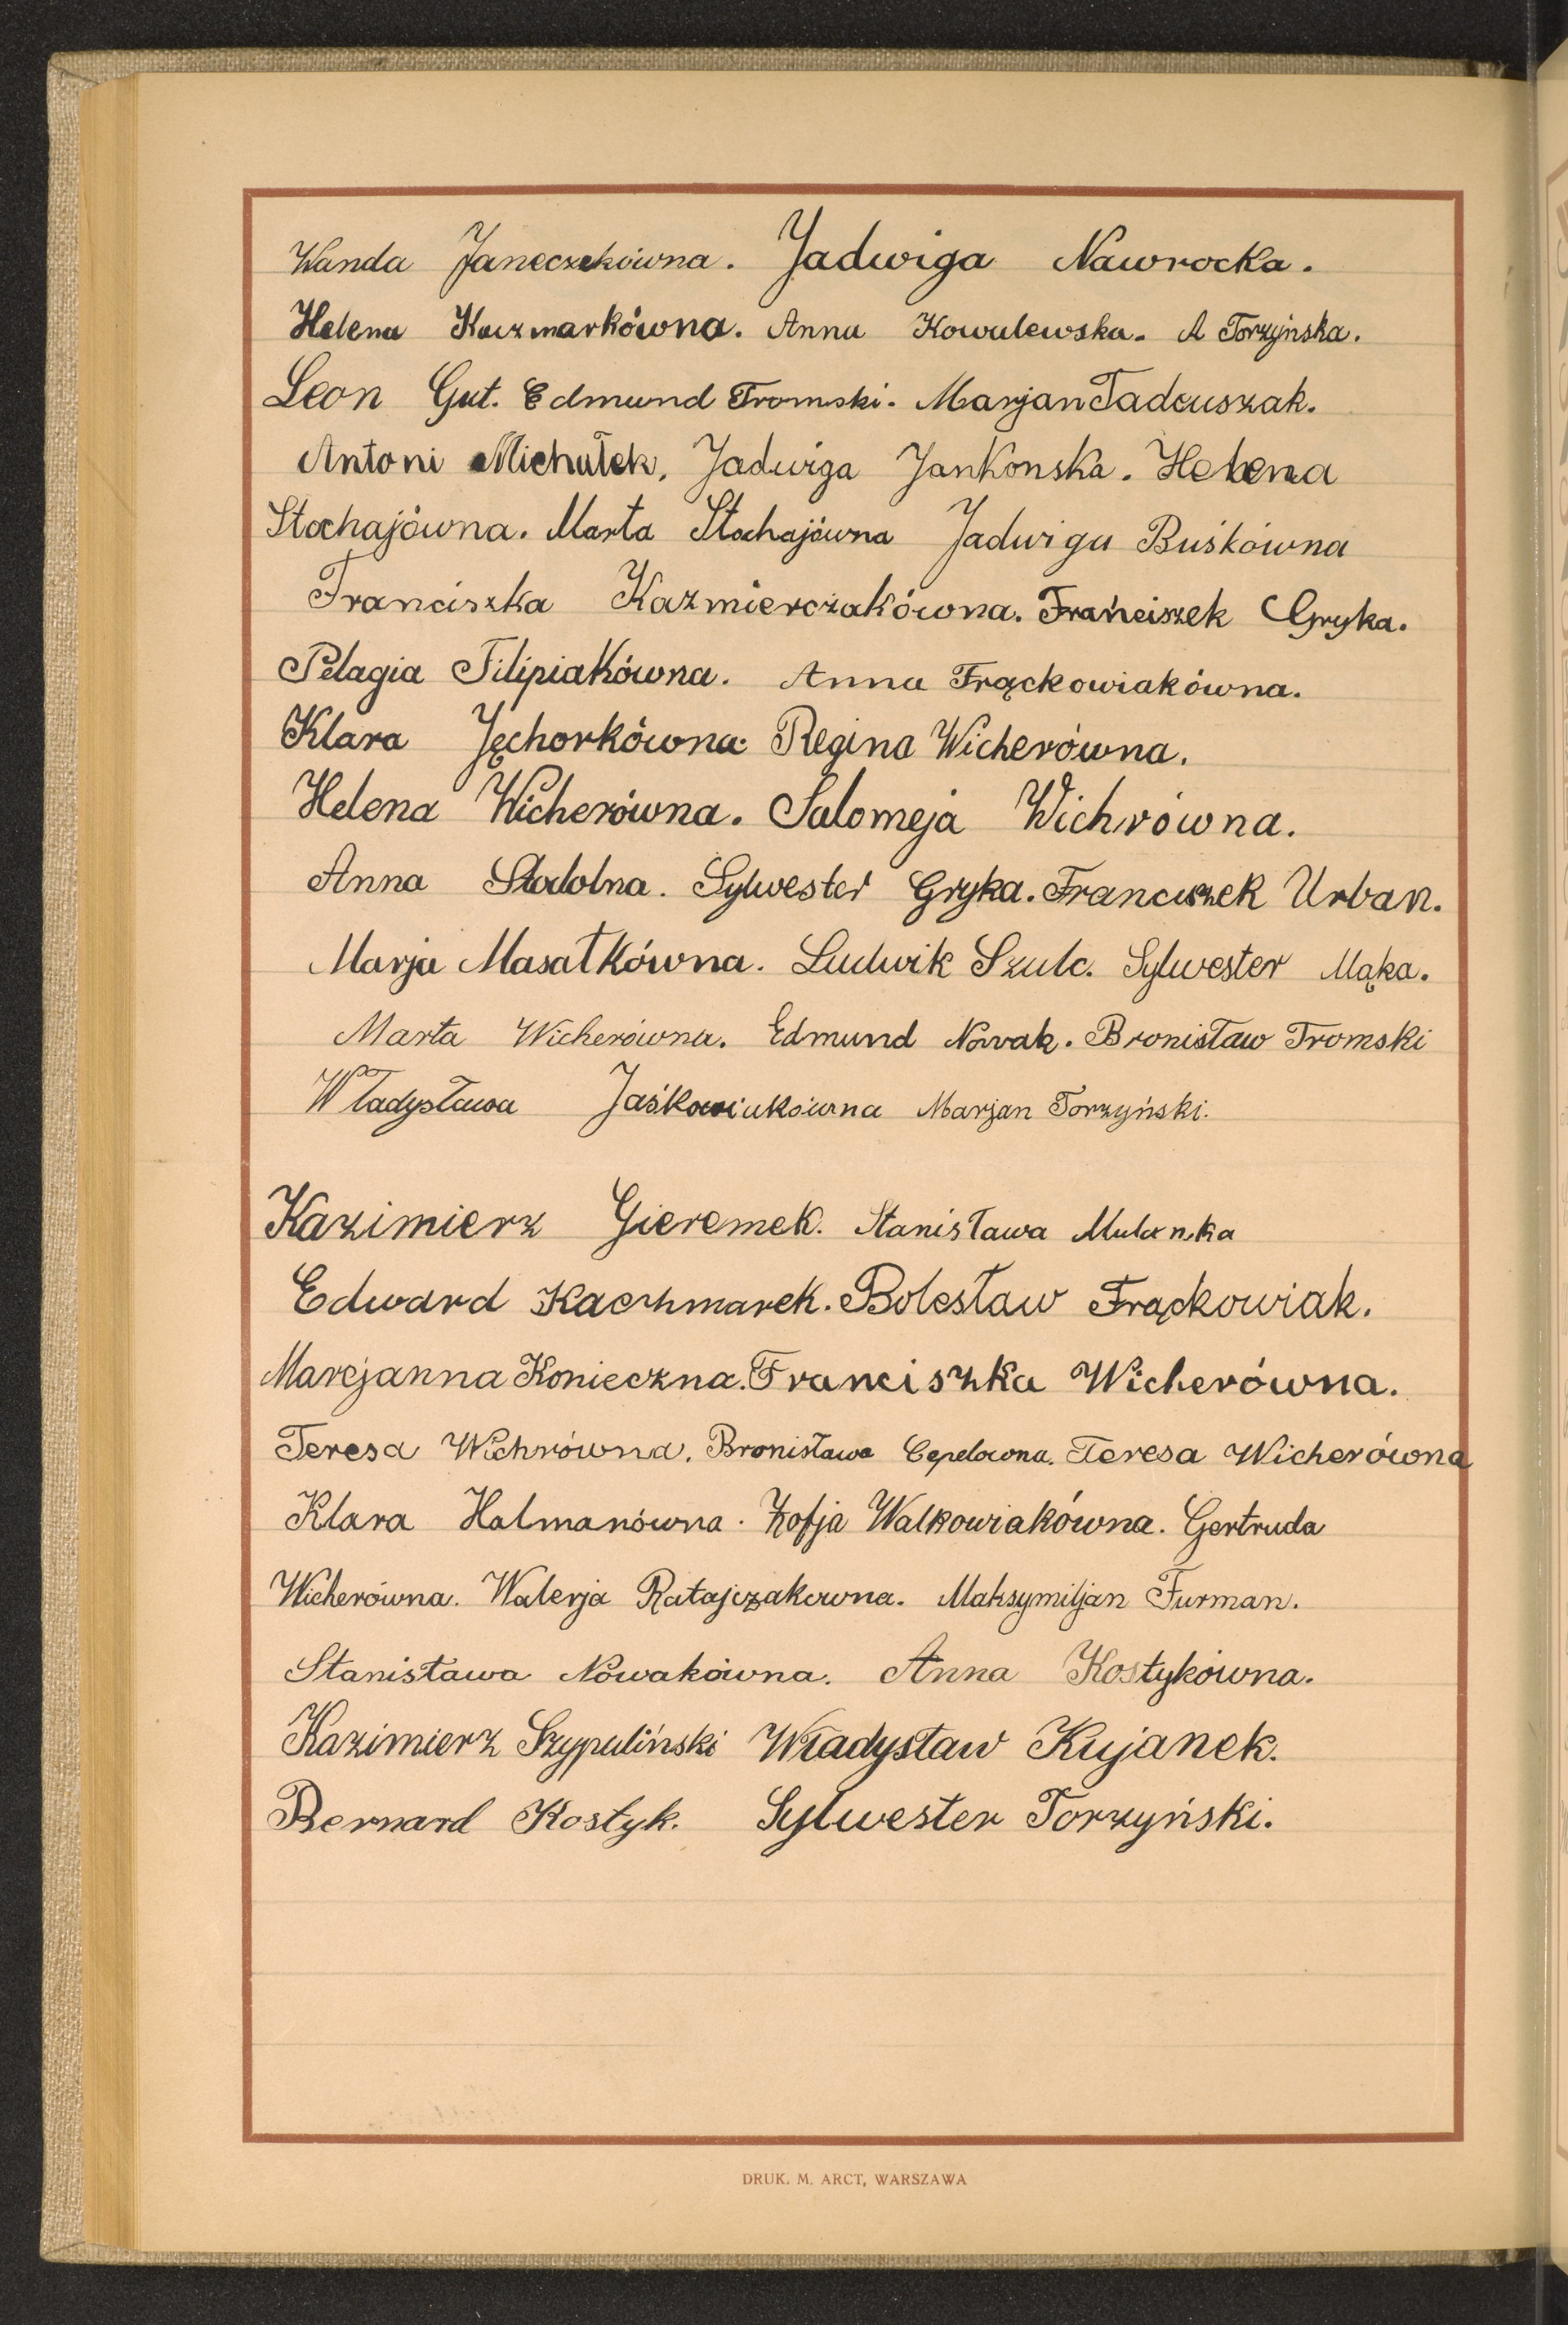 Wanda Janeczekówna. Jadwiga Nawrocka.
Helena Kaczmarkówna. Anna Kowalewska. A Torzyńska.
Leon Gut. Edmund Tromski. Marjan Tadeuszak.
Antoni Michałek. Jadwiga Jankonska. Helena
Stochajówna. Marta Stochajówna Jadwiga Buśkówna
Franciszka Kazmierczakówna. Franciszek Gryka.
Pelagia Filipiakówna. Anna Frąckowiakówna.
Klara Jęchorkówna. Regina Wicherówna.
Helena Wicherówna. Salomeja Wichrówna.
Anna Stodolna. Sylwester Gryka. Franciszek Urban.
Marja Masałkówna. Ludwik Szulc. Sylwester Mąka.
Marta Wicherówna. Edmund Nowak. Bronisław Tromski
Władysława Jaśkowiakówna Marjan Torzyński.
Kazimierz Gieremek. Stanisława Mulanka
Edward Kaczmarek. Bolesław Frąckowiak.
Marcjanna Konieczna. Franciszka Wicherówna.
Teresa Wichrówna. Bronisława Cepelowna. Teresa Wicherówna
Klara Halmanówna. Zofja Walkowiakówna. Gertruda
Wicherówna. Walerja Ratajczakowna. Maksymiljan Furman.
Stanisława Nowakówna. Anna Kostykówna.
Kazimierz Szypuliński Władysław Kujanek.
Bernard Kostyk. Sylwester Torzyński.
DRUK. M. ARCT, WARSZAWA